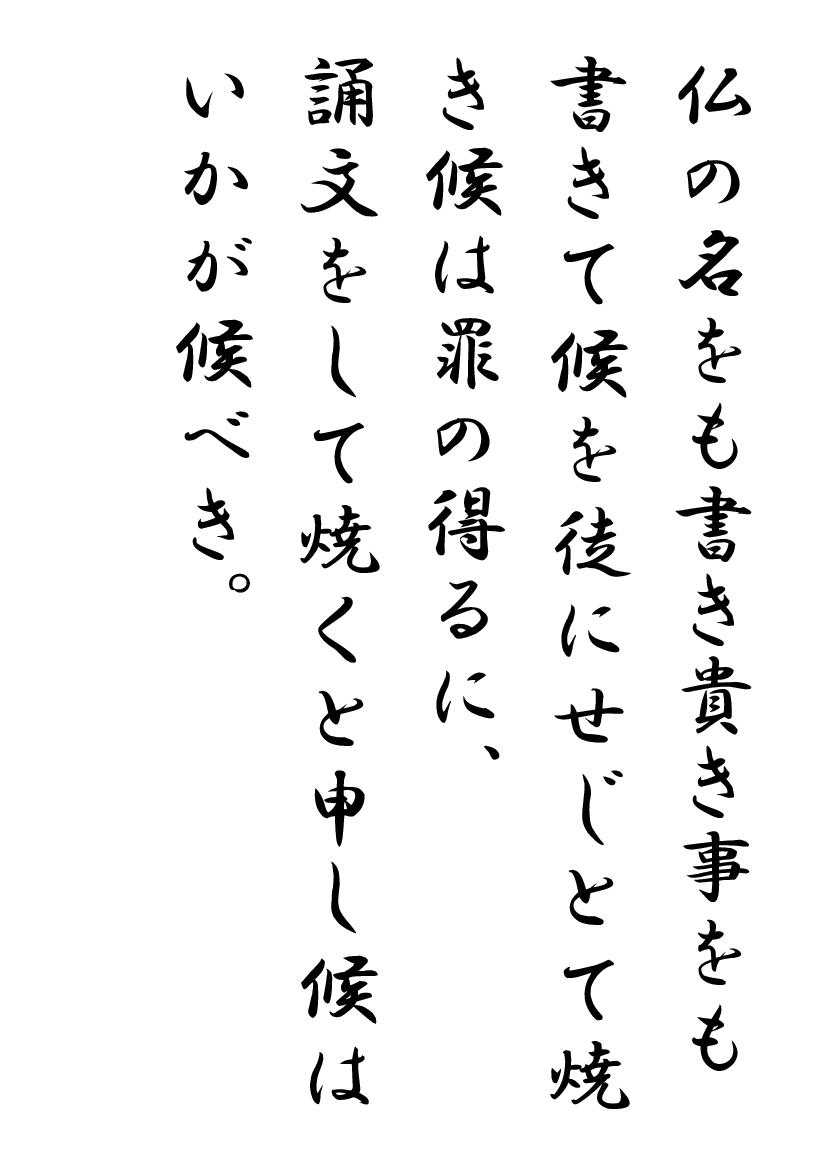 仏の名をも書き貴き事をも
書きて候を徒にせじとて焼
き候は罪の得るに、
誦文をして焼くと申し候は
いかが候べき。